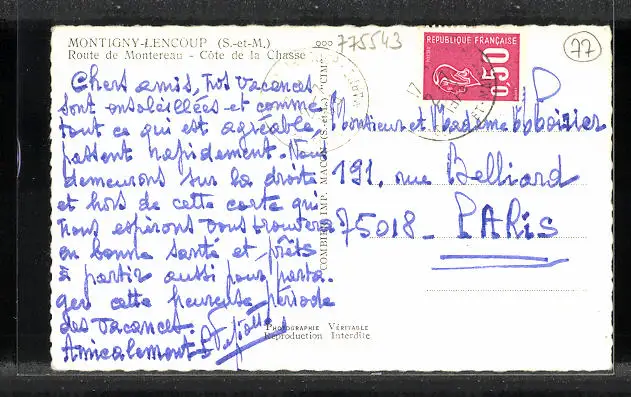 MONTIGNY-LENCOUP (S.-et-M.)
Route de Montereau - Côte de la Chasse
775543
77
REPUBLIQUE FRANÇAISE
0,50
Chers amis, nos vacances
sont ensoleillées et comme
tout ce qui est agréable,
passent rapidement. Nous
demeurons sur la droite
et hors de cette carte qui
nous espérons vous trouvera
en bonne santé et prêts
à partir aussi pour parta-
ger cette heureuse période
des vacances.
Amicalement
Monsieur et Madame
191, rue Belliard
75018 - PARIS
COMBIER IMP. MACON (S.-et-L.)
PHOTOGRAPHIE VÉRITABLE
Reproduction Interdite